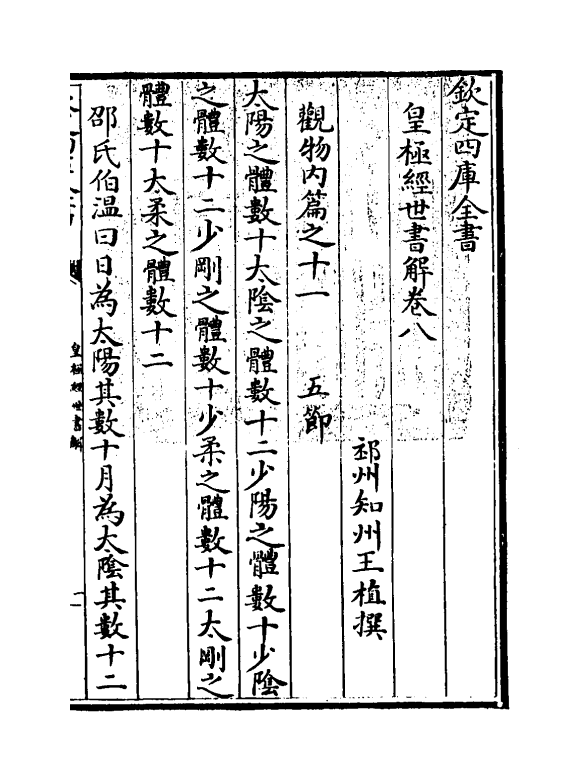 欽定四庫全書
皇極經世書解卷八
邳州知州王植撰
觀物內篇之十一　五節
太陽之體數十太陰之體數十二少陽之體數十少陰
之體數十二少剛之體數十少柔之體數十二太剛之
體數十太柔之體數十二
邵氏伯溫曰日為太陽其數十月為太陰其數十二
皇極經世書解